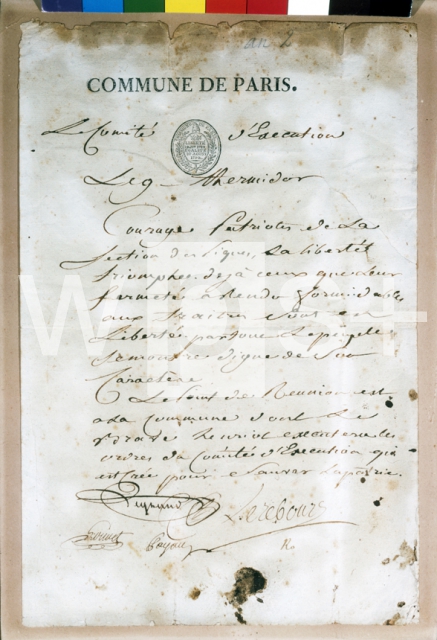 an 2
COMMUNE DE PARIS.
Le Comité d'Execution
Le 9 thermidor
Courage Patriotes de La
Section des Piques, La liberté
triomphe deja ceux que leur
fermeté a Rendu formidables
aux traitres sont en
Liberté partout Le peuple
Se montre digne de Son
Caractère
Le point de Reunion est
a La Commune dont Le
brave henriot executera les
ordres du Comité d'Execution qui
est Crée pour Sauver La patrie.
Legrand Lerebours
Louvet Payan R